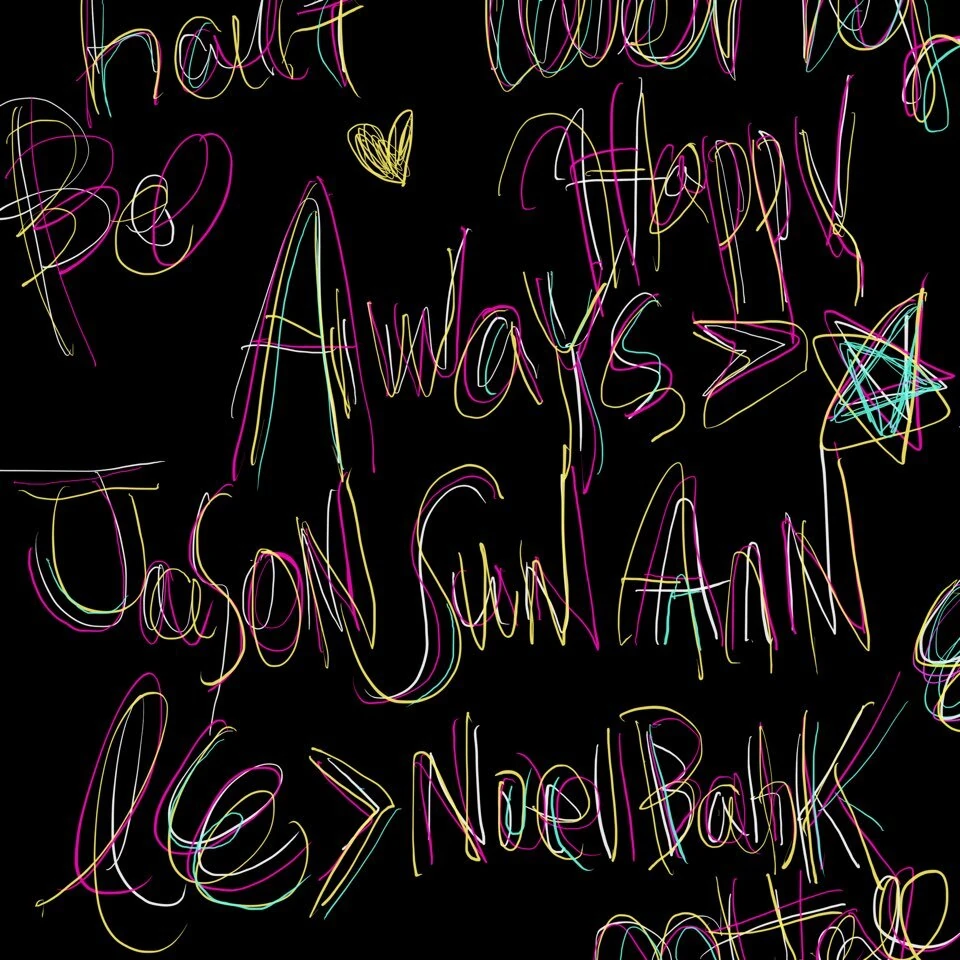 half
Be Happy
Always >
Jason Sun Ann
le > Noel Bank